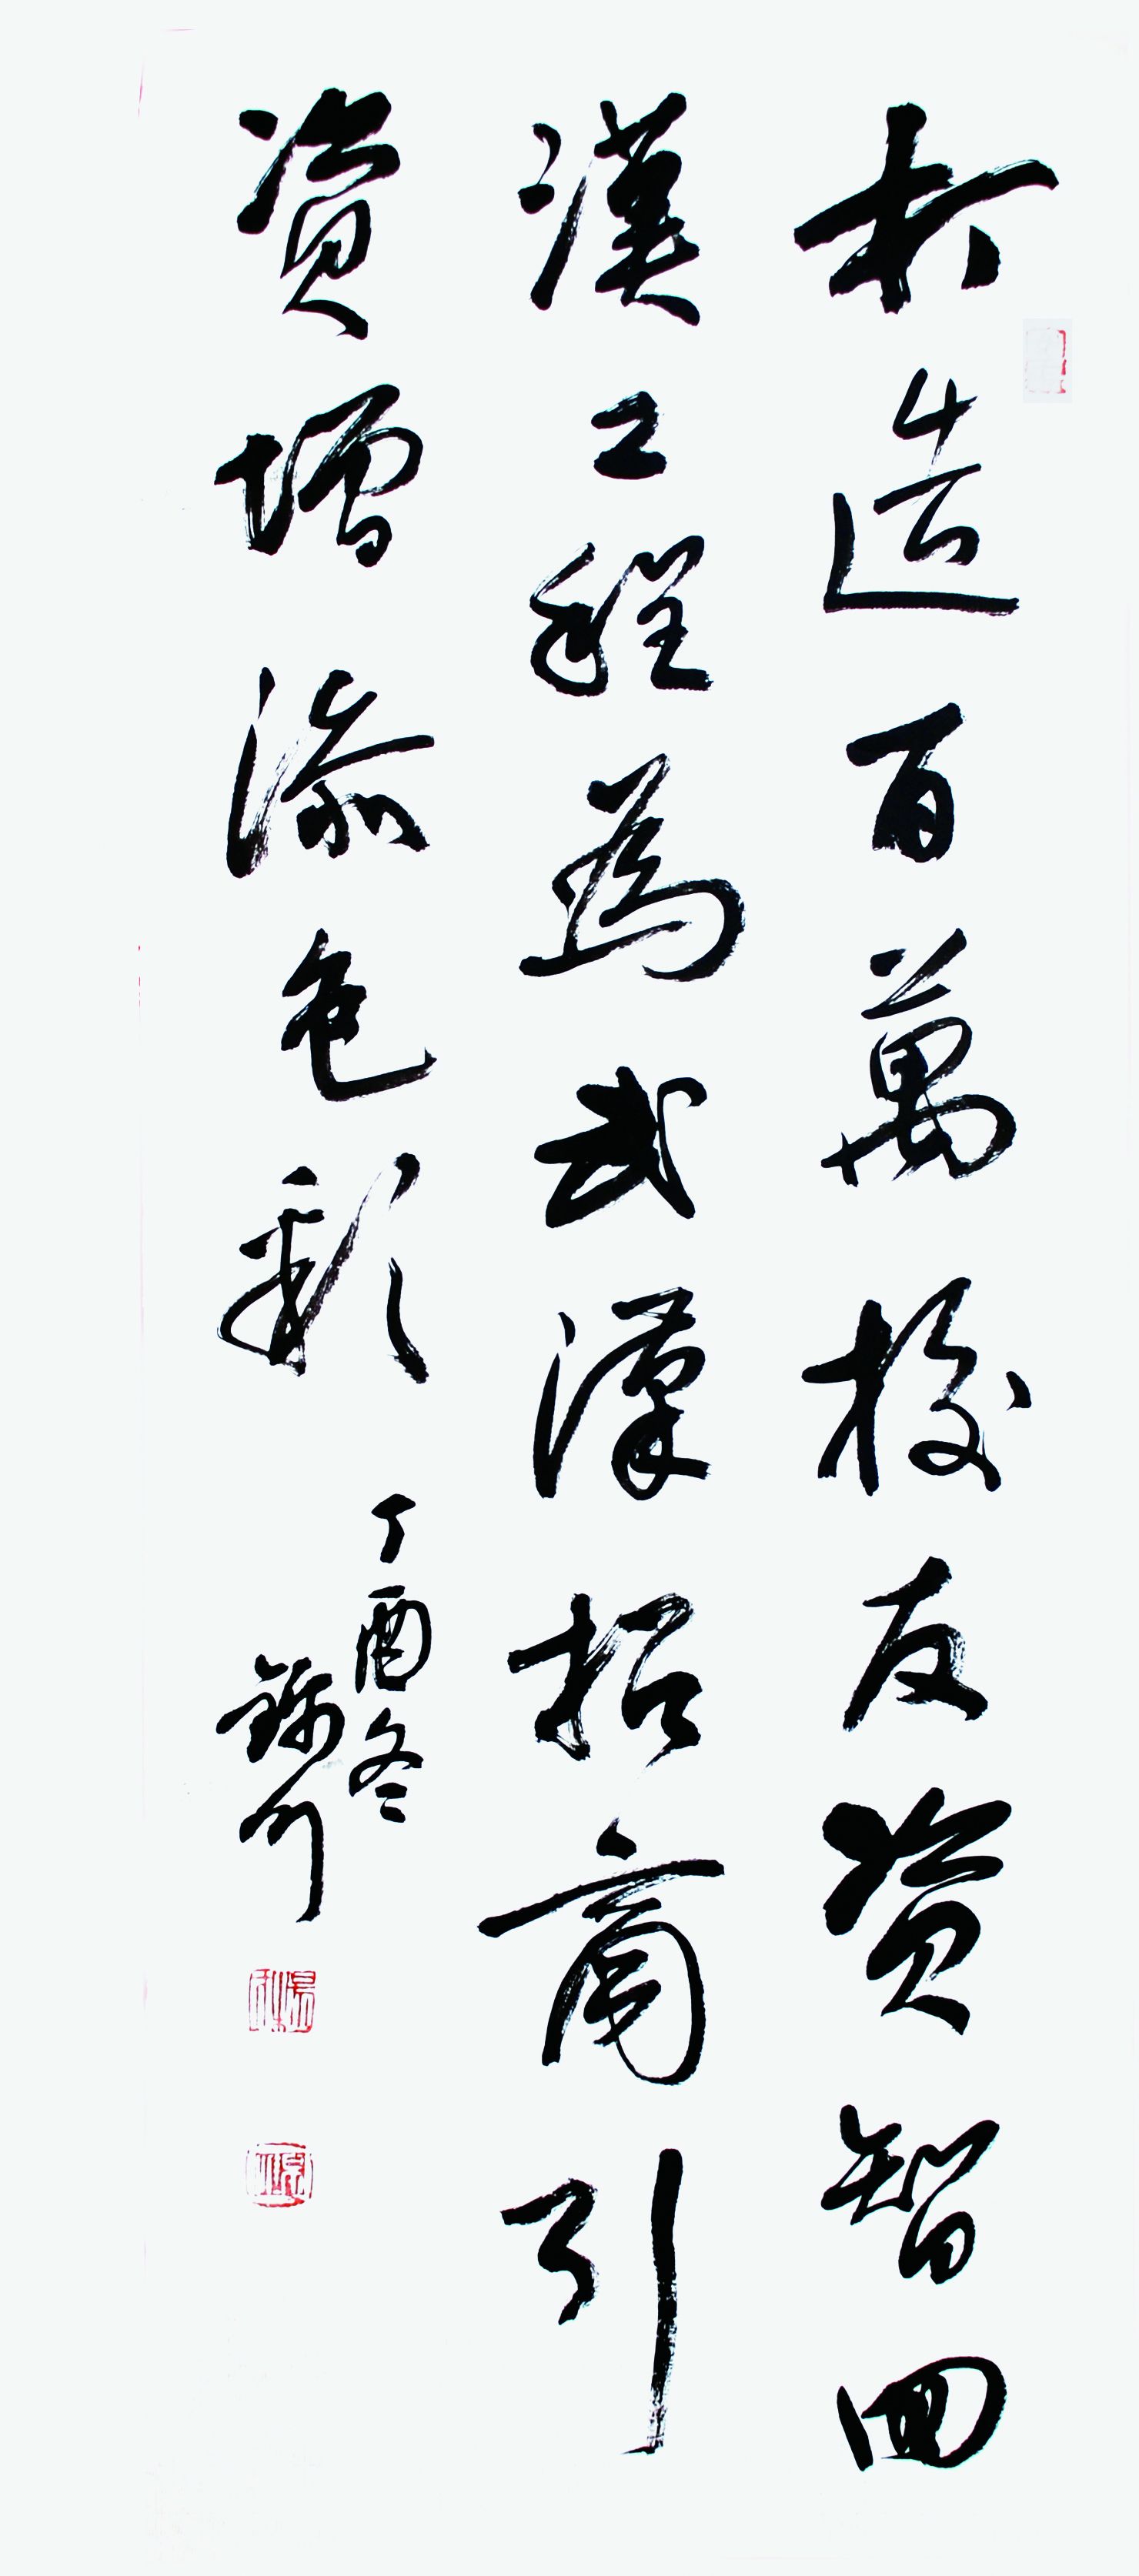 打造百萬校友资智回
漢工程為武漢招商引
资增添色彩
丁酉冬